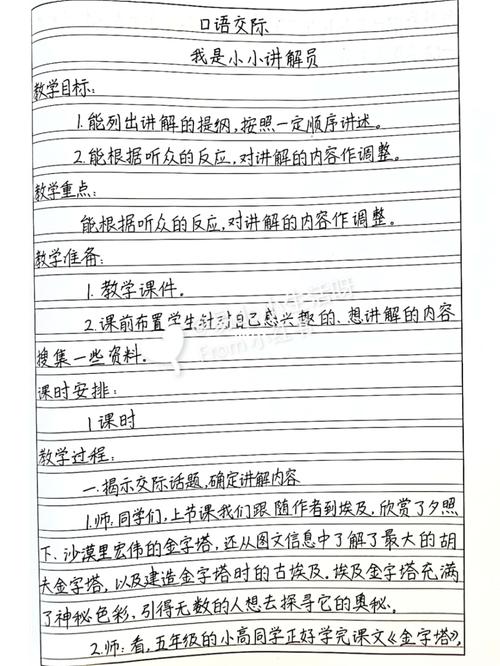 口语交际
我是小小讲解员
教学目标:
1.能列出讲解的提纲,按照一定顺序讲述。
2.能根据听众的反应,对讲解的内容作调整。
教学重点:
能根据听众的反应,对讲解的内容作调整。
教学准备:
1.教学课件。
2.课前布置学生针对自己感兴趣的、想讲解的内容
搜集一些资料.
课时安排:
1课时
教学过程:
一.揭示交际话题,确定讲解内容
1.师:同学们,上节课我们跟随作者到埃及,欣赏了夕照
下、沙漠里宏伟的金字塔,还从图文信息中了解了最大的胡
夫金字塔,以及建造金字塔时的古埃及.埃及金字塔充满
了神秘色彩,引得无数的人想去探寻它的奥秘.
2.师:看,五年级的小高同学正好学完课文《金字塔》,